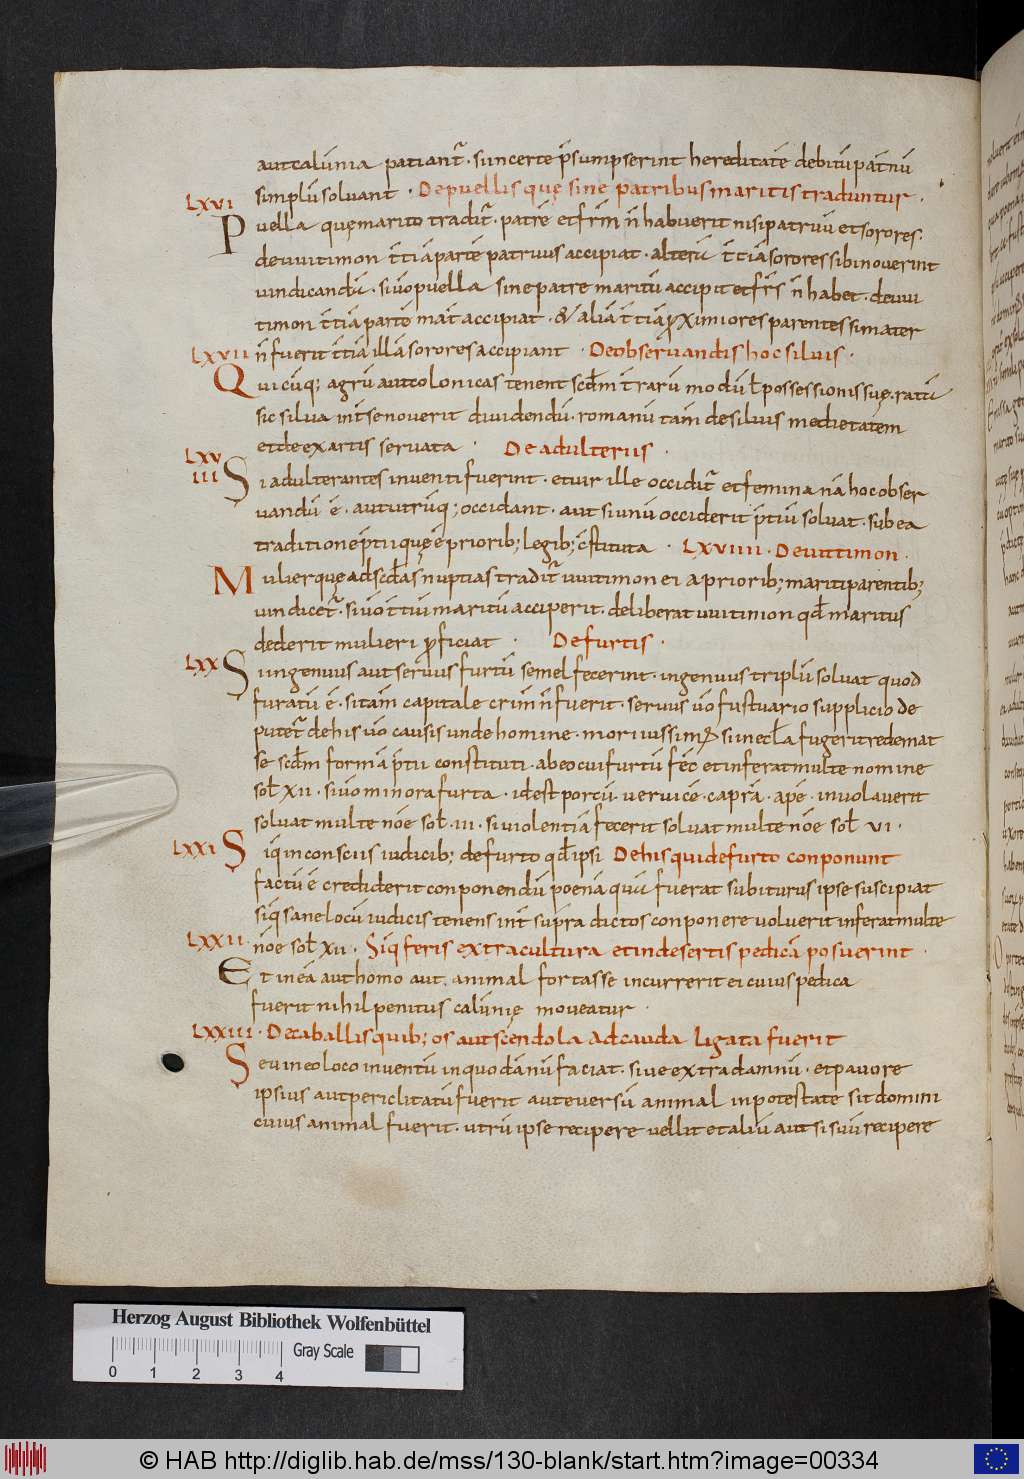 aut calūnia patiant̄. sin certe p̄sumpserint hereditatē debitū pat̄nū
simplū soluant. De puellis quę sine patribus maritis traduntur.
LXVI
Puella quę marito tradit̄. patrē et fr̄m n̄ habuerit nisi patruū et sorores.
de uuitimon t̄tiā partē patruus accipiat. alterū t̄tiā sorores sibi nouerint
uindicandū. si ūo puella sine patre maritū accipit et fr̄s n̄ habet. de uui
timon t̄tiā partē mat̄ accipiat. & aliā t̄tiā ꝓximiores parentes si mater
LXVII
n̄ fuerit t̄tiā illā sorores accipiant. De obseruandis hoc siluis.
Quicūq; agrū aut colonicas tenent scđm t̄rarū modū ł possessionis suę. ratū
sic silua int̄ se nouerit diuidendū. romanū tam̄ de siluis medietatem
et de exartis seruata. De adulteriis.
LXV
III
Si adulterantes inuenti fuerint. et uir ille occidit̄ et femina nā hoc obser
uandū ē. aut utrūq; occidant. aut si unū occiderit p̄tiū soluat. sub ea
traditione p̄tii quę ē priorib; legib; c̄stituta. LXVIIII. De uuitimon.
Mulier quę ad scđas nuptias tradit̄ uuitimon ei a priorib; mariti parentib;
uindicet̄. si ūo t̄tiū maritū acciperit. deliberat uuitimon qđ maritus
dederit mulieri ꝓficiat. De furtis.
LXX
Si ingenuus aut seruus furtū semel fecerint. ingenuus triplū soluat quod
furatū ē. si tam̄ capitale crim̄ n̄ fuerit. seruus ūo fustuario supplicio de
putet̄ de his ūo causis unde homine. mori iussim; si in ecł̄a fugerit redemat
se scđm formā p̄tii constituti. ab eo cui furtū fec̄ et inferat multe nomine
soł XII. si ūo minora furta. id est porcū. veruicē. caprā. apē. inuolauerit
soluat multe nōe soł. III. si uiolentiā fecerit soluat multe nōe soł VI.
LXXI
Si q̄ in consciis iudicib; de furto qđ ipsi De his qui de furto conponunt
factū ē crediderit conponendū poenā quā fuerat subiturus ipse suscipiat
si q̄ sane locū iudicis tenens int̄ supra dictos conponere uoluerit inferat multe
LXXII.
nōe soł XII. Si q̄ feris extra cultura et in desertis pedicā posuerint.
Et in eā aut homo aut animal fortasse incurrerit ei cuius pedica
fuerit nihil penitus calūnię moueatur.
LXXIII. De caballis quib; os aut scendola ad cauda ligata fuerit
Seu in eo loco inuentū in quo dānū faciat. siue extra damnū. et pauore
ipsius aut periclitatū fuerit aut euersū animal in potestate sit domini
cuius animal fuerit. utrū ipse recipere uellit et aliū aut si suū recipere
Herzog August Bibliothek Wolfenbüttel
Gray Scale
0 1 2 3 4
© HAB http://diglib.hab.de/mss/130-blank/start.htm?image=00334